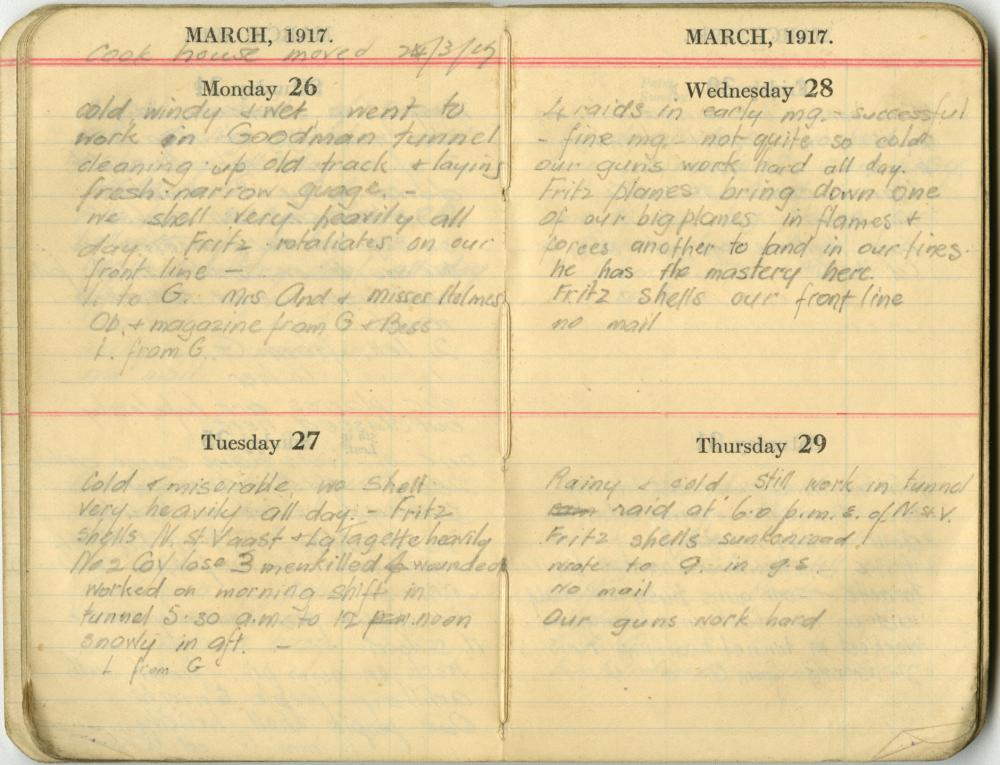 MARCH, 1917.
Cook house moved 24/3/17
Monday 26
cold, windy & wet, went to
work in Goodman tunnel
cleaning up old track & laying
fresh narrow guage. -
we shell very heavily all
day. Fritz rotaliates on our
front line -
L. to G. Mrs And & misses Helmes
Ob. + magazine from G & Bess
L. from G.
Tuesday 27
Cold & miserable, we shell
very heavily all day. - Fritz
shells N. St Vaast & La Tagette heavily
No 2 Coy lose 3 men killed 6 wounded
worked on morning shift in
tunnel 5.30 a.m. to 12 noon
snowy in aft. -
L from G
MARCH, 1917.
Wednesday 28
4 raids in early mg. - successful
- fine mg. - not quite so cold
our guns work hard all day.
Fritz planes bring down one
of our big planes in flames &
forces another to land in our lines.
he has the mastery here.
Fritz shells our front line
no mail
Thursday 29
Rainy & cold still work in tunnel
raid at 6.0 p.m. s. of N. St. V.
Fritz shells sunken road
wrote to G. in g.s.
No mail
Our guns work hard